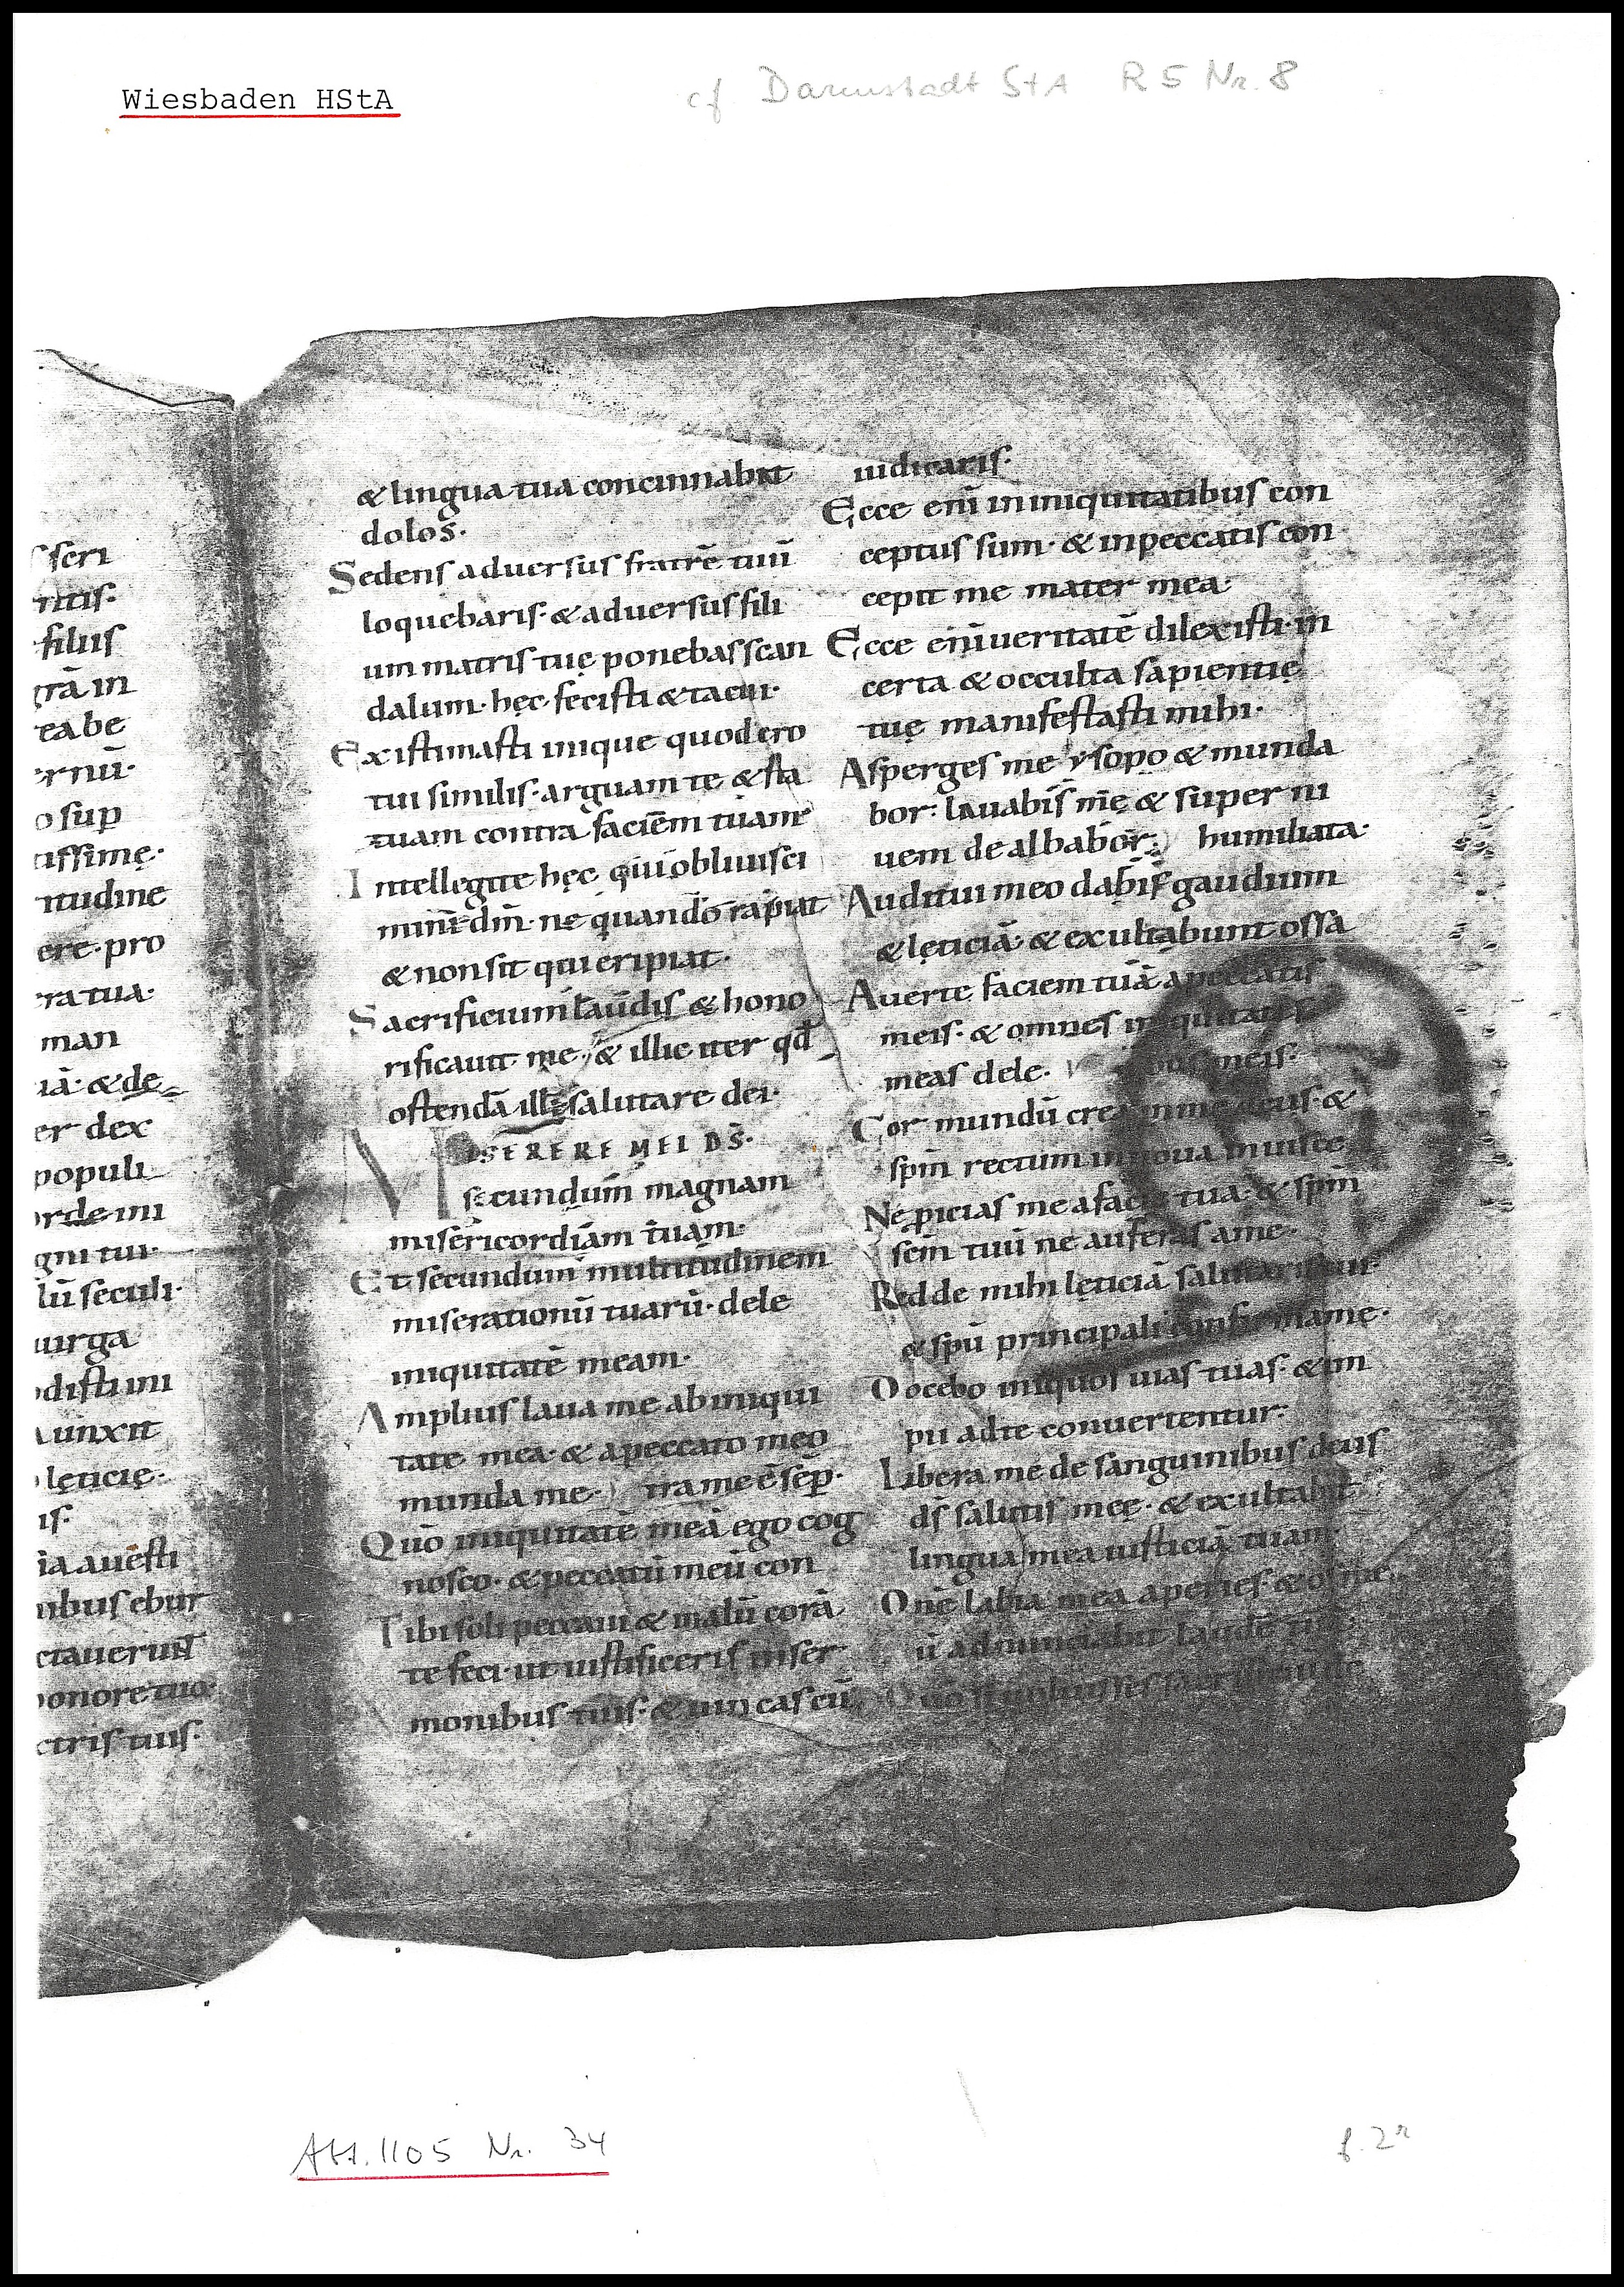 Wiesbaden HStA
cf Darmstadt StA R 5 Nr. 8
seri
ntis·
filius
grā in
ea be
ernū·
o sup
issimę·
ntudine
ere· pro
ra tua·
man
iā· & de
er dex
populi
orde ini
gni tui·
lū seculi·
uirga
odisti ini
unxit
lęticię·
is·
ia a uesti
nibus ebur
ctauerunt
honore tuo·
ctris tuis·
& lingua tua concinnabat
dolos·
Sedens aduersus fratrē tuū
loquebaris· & aduersus fili
um matris tuę ponebas scan
dalum· hęc fecisti & tacui·
Existimasti inique quod ero
tui similis· arguam te & sta
tuam contra faciem tuam·
Intellegite hęc qui obliuisci
mini dm̄· ne quando rapiat
& non sit qui eripiat·
Sacrificium laudis & hono
rificauit me· & illic iter qđ
ostendā illi salutare dei·
MISERERE MEI DS̄·
secundum magnam
misericordiam tuam·
Et secundum multitudinem
miserationū tuarū· dele
iniquitatē meam·
Amplius laua me ab iniqui
tate mea· & a peccato meo
munda me· tra me ē sēp·
Quō iniquitatē meā ego cog
nosco· & peccatū meū con
Tibi soli peccaui & malū corā
te feci· ut iustificeris in ser
monibus tuis· & uincas cū
iudicaris·
Ecce enī in iniquitatibus con
ceptus sum· & in peccatis con
cepit me mater mea·
Ecce enī ueritatē dilexisti· in
certa & occulta sapientię
tuę manifestasti mihi·
Asperges me ysopo & munda
bor: lauabis me & super ni
uem dealbabor; humiliata·
Auditui meo dabis gaudium
& lęticiā· & exultabunt ossa
Auerte faciem tuā a peccatis
meis· & omnes iniquitates
meas dele· meis·
Cor mundū crea in me deus· &
spm̄ rectum innoua in uisce
Ne ꝓicias me a facie tua· & spm̄
scm̄ tuū ne auferas a me·
Redde mihi lęticiā salutaris tui·
& spū principali confirma me·
Docebo iniquos uias tuas· & im
pii ad te conuertentur:
Libera me de sanguinibus deus
ds salutis meę· & exultabit
lingua mea iusticiā tuam·
Dn̄e labia mea aperies· & os me
ū adnunciabit laudē tuā
Att. 1105 Nr. 34
f. 2r